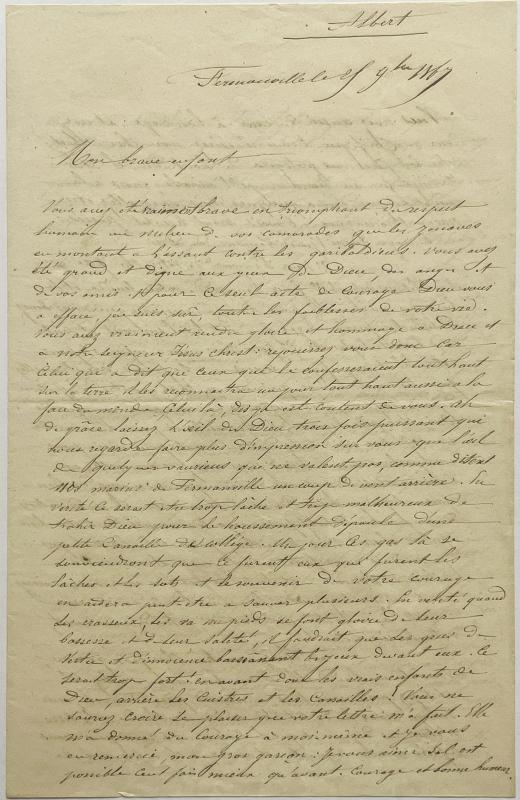 Albert
Fermanville le 25 9bre 1867
Mon brave enfant
Vous avez été vraiment brave en triomphant du respect
humain au milieu de vos camarades que les zouaves
en montant à l'assaut contre les garibaldiens. Vous avez
été grand et digne aux yeux De Dieu, des anges et
de vos amis. et pour ce seul acte de courage Dieu vous
a effacé j'en suis sur, toutes les faiblesses de votre vie.
Vous avez vraiment rendu gloire et hommage à Dieu et
à notre seigneur Jésus christ: rejouissez vous donc car
Celui qui a dit que ceux qui le confesseraient tout haut
sur la terre il les reconnaitra un jour tout haut aussi à la
face du monde Celui là, dis-je est content de vous. Ah
de grâce laissez l'oeil de Dieu trois fois puissant qui
nous regarde faire plus d'impression sur vous que l'oeil
de quelques vauriens qui ne valent pas, comme disent
nos marins de Fermanville un coup de vent arrière. En
verité ce serait être trop lâche et trop malheureux de
trahir Dieu pour le d'une
petite Canaille de collège. Un jour ces gas là se
souviendront que ce furent eux qui furent les
lâches et les sots et le souvenir de votre courage
en aidera peut être à sauver plusieurs. En verité quand
les crasseux, les va nu pieds se font gloire de leur
bassesse et de leur saleté, il faudrait que les gens de
vertu et d'innocence baissassent les yeux devant eux. Ce
serait trop fort! en avant donc les vrais enfants de
Dieu, arrière les Cuistres et les Canailles! Vous ne
sauriez croire le plaisir que votre lettre m'a fait. Elle
m'a donné du Courage à moi-même et je vous
en remercie, mon gros garçon: Je vous aime s'il est
possible Cent fois mieux qu'avant. Courage et bonne humeur.